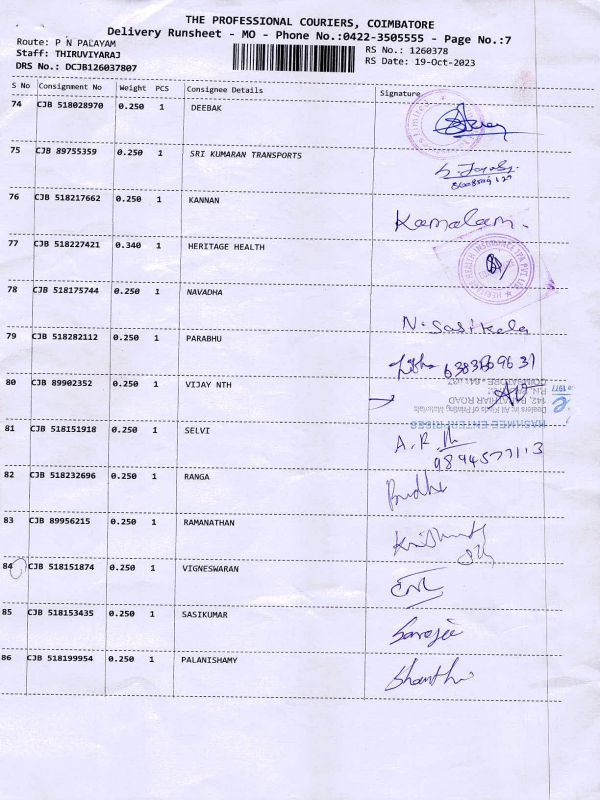 THE PROFESSIONAL COURIERS, COIMBATORE
Delivery Runsheet - MO - Phone No.:0422-3505555 - Page No.:7
Route: P N PALAYAM
RS No.: 1260378
Staff: THIRUVIYARAJ
RS Date: 19-Oct-2023
DRS No.: DCJB126037807
S No Consignment No Weight PCS Consignee Details Signature
74 CJB 518028970 0.250 1 DEEBAK
75 CJB 89755359 0.250 1 SRI KUMARAN TRANSPORTS
76 CJB 518217662 0.250 1 KANNAN Kamalam.
77 CJB 518227421 0.340 1 HERITAGE HEALTH
78 CJB 518175744 0.250 1 NAVADHA N. Sasikala
79 CJB 518282112 0.250 1 PARABHU
80 CJB 89902352 0.250 1 VIJAY NTH
Dealers in: All Kinds of Printing Materials
1977
81 CJB 518151918 0.250 1 SELVI A.R.
9894577113
82 CJB 518232696 0.250 1 RANGA
83 CJB 89956215 0.250 1 RAMANATHAN
84 CJB 518151874 0.250 1 VIGNESWARAN
85 CJB 518153435 0.250 1 SASIKUMAR Saroja
86 CJB 518199954 0.250 1 PALANISHAMY Shanthi